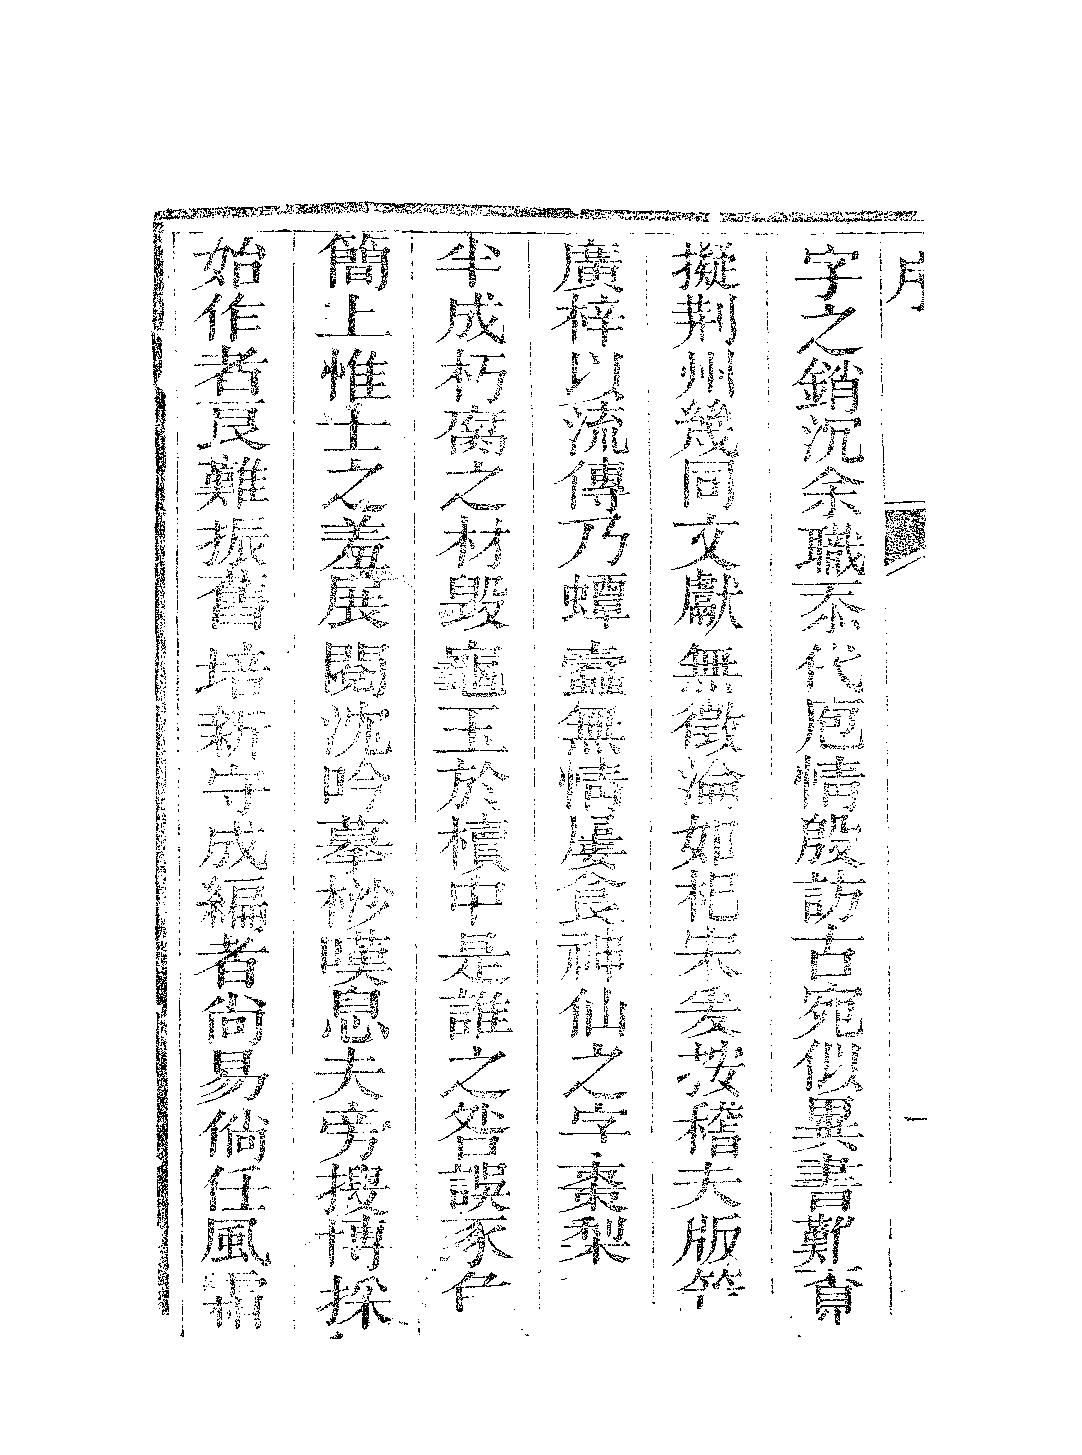 序
一
字之銷沉余職忝代庖情殷訪古宛似異書難賁
擬荆州幾同文獻無徵淪如杞宋爰按稽夫版
廣梓以流傳乃蟫蠹無情屢食神仙之字棗梨
半成朽腐之材毀龜玉於櫝中是誰之咎誤豕
簡上惟士之羞展閱沈吟摹挱嘆息夫旁搜博採
始作者良難振舊培新守成編者尚易倘任風霜